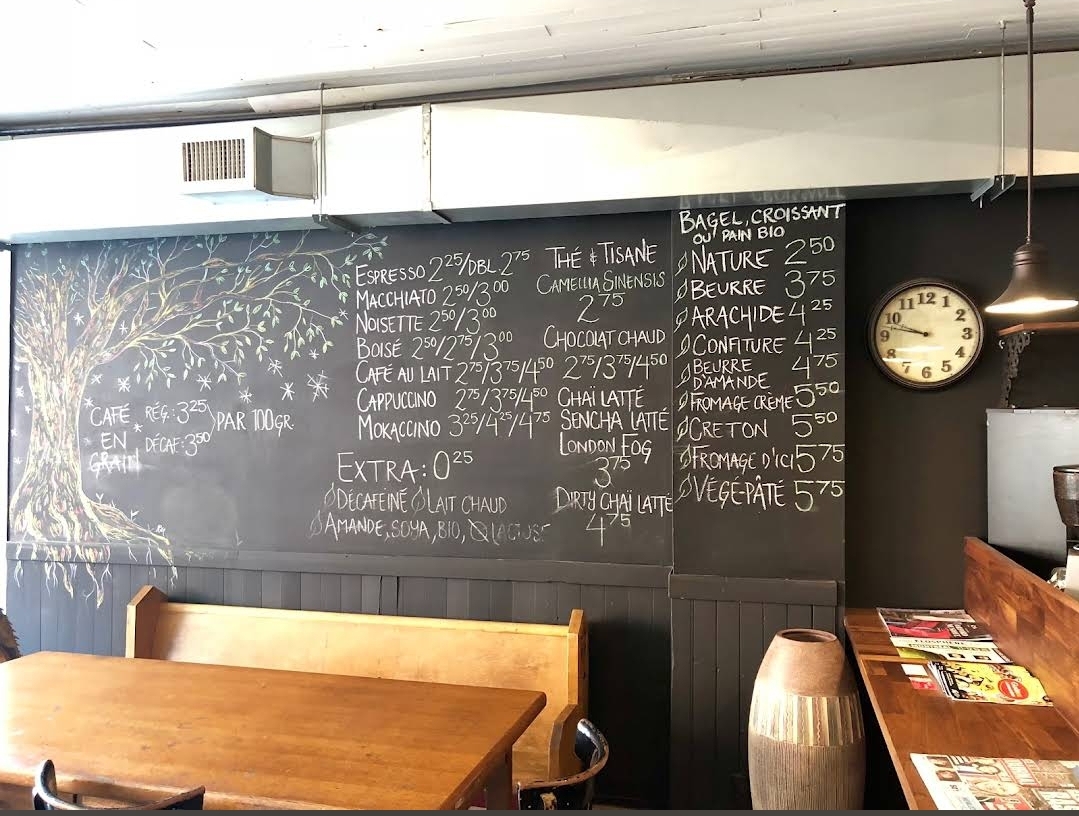 CAFÉ
EN
GRAIN
RÉG.: 3.25
DÉCAF: 3.50
PAR 100GR.
ESPRESSO 2.25/DBL. 2.75
MACCHIATO 2.50/3.00
NOISETTE 2.50/3.00
BOISÉ 2.50/2.75/3.00
CAFÉ AU LAIT 2.75/3.75/4.50
CAPPUCCINO 2.75/3.75/4.50
MOKACCINO 3.25/4.25/4.75
EXTRA: 0.25
DÉCAFEINÉ LAIT CHAUD
AMANDE, SOYA, BIO, LACTOSE
THÉ & TISANE
CAMELLIA SINENSIS
2.75
CHOCOLAT CHAUD
2.75/3.75/4.50
CHAÏ LATTÉ
SENCHA LATTÉ
LONDON FOG
3.75
DIRTY CHAÏ LATTÉ
4.75
BAGEL, CROISSANT
OU PAIN BIO
NATURE 2.50
BEURRE 3.75
ARACHIDE 4.25
CONFITURE 4.25
BEURRE
D'AMANDE 4.75
FROMAGE CRÈME 5.50
CRETON 5.50
FROMAGE D'ICI 5.75
VÉGÉ-PÂTÉ 5.75
12 1 2 3 4 5 6 7 8 9 10 11